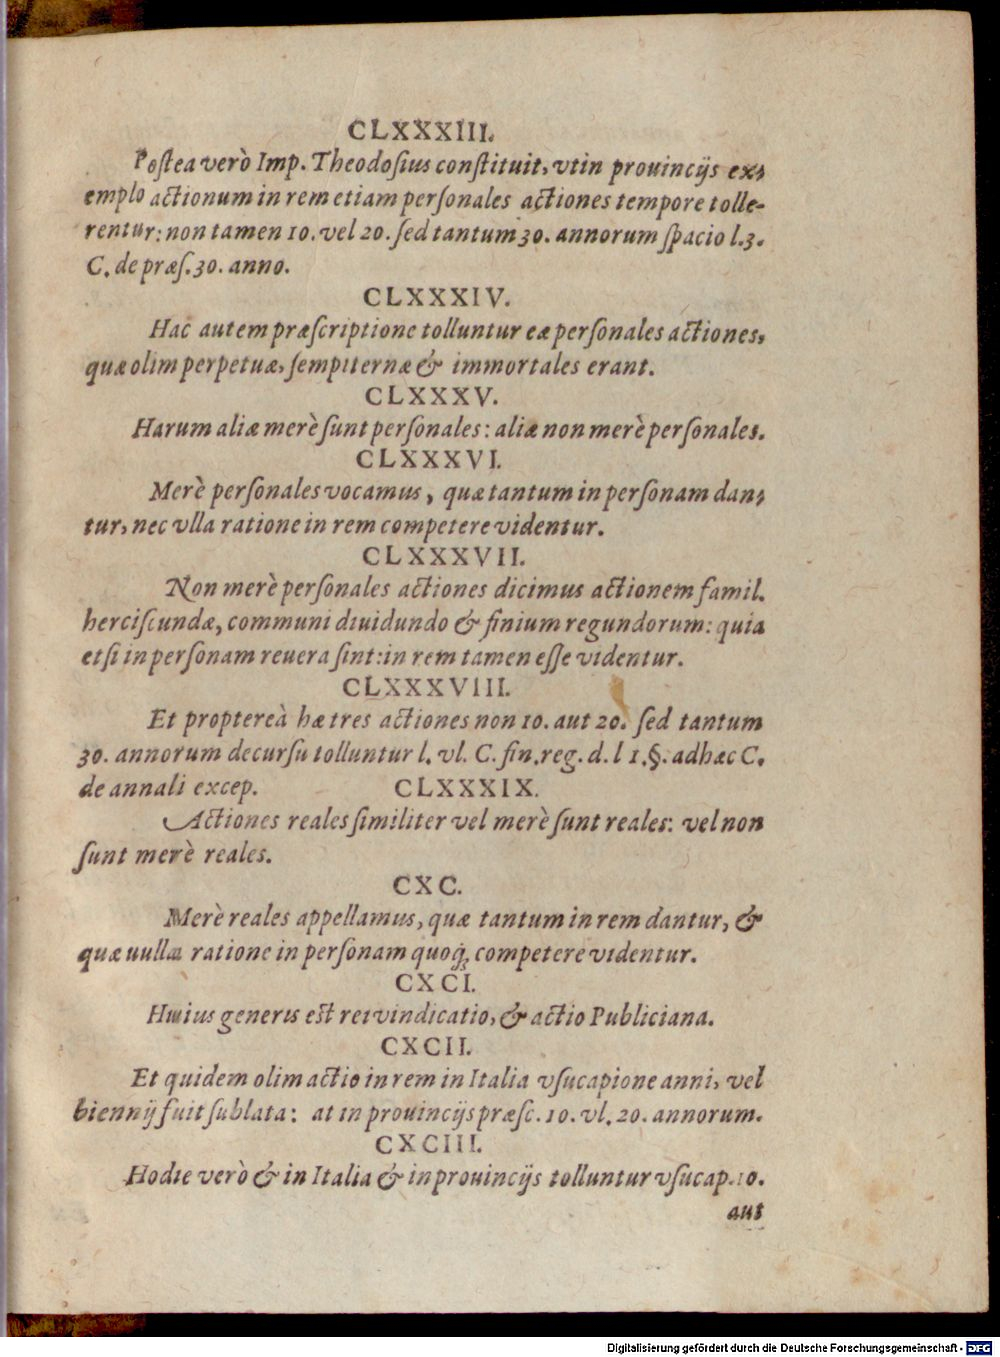 CLXXXIII.
Postea verò Imp. Theodosius constituit, vt in prouincijs ex-
emplo actionum in rem etiam personales actiones tempore tolle-
rentur: non tamen 10. vel 20. sed tantum 30. annorum spacio l.3.
C. de præs. 30. anno.
CLXXXIV.
Hac autem præscriptione tolluntur eæ personales actiones,
quæ olim perpetuæ, sempiternæ & immortales erant.
CLXXXV.
Harum aliæ merè sunt personales: aliæ non merè personales.
CLXXXVI.
Merè personales vocamus, quæ tantum in personam dan-
tur, nec vlla ratione in rem competere videntur.
CLXXXVII.
Non merè personales actiones dicimus actionem famil.
herciscundæ, communi diuidundo & finium regundorum: quia
etsi in personam reuera sint: in rem tamen esse videntur.
CLXXXVIII.
Et proptereà hæ tres actiones non 10. aut 20. sed tantum
30. annorum decursu tolluntur l. vl. C. fin. reg. d. l 1. §. adhæc C.
de annali excep. CLXXXIX.
Actiones reales similiter vel merè sunt reales: vel non
sunt merè reales.
CXC.
Merè reales appellamus, quæ tantum in rem dantur, &
quæ uulla ratione in personam quoq; competere videntur.
CXCI.
Huius generis est rei vindicatio, & actio Publiciana.
CXCII.
Et quidem olim actio in rem in Italia vsucapione anni, vel
biennij fuit sublata: at in prouincijs præsc. 10. vl. 20. annorum.
CXCIII.
Hodie verò & in Italia & in prouincijs tolluntur vsucap. 10.
aut
Digitalisierung gefördert durch die Deutsche Forschungsgemeinschaft - DFG